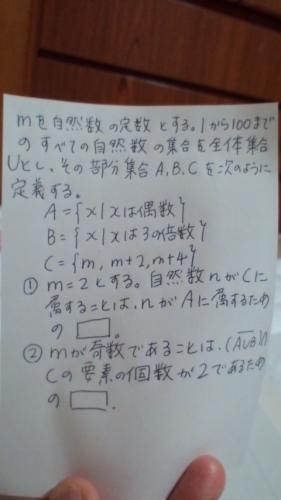 mを自然数の定数とする。1から100まで
のすべての自然数の集合を全体集合
Uとし、その部分集合A,B,Cを次のように
定義する。
A={x|xは偶数}
B={x|xは3の倍数}
C={m, m+2, m+4}
① m=2とする。自然数nがCに
属することは、nがAに属するため
の□。
② mが奇数であることは、(\overline{A∪B})∩
Cの要素の個数が2であるため
の□.